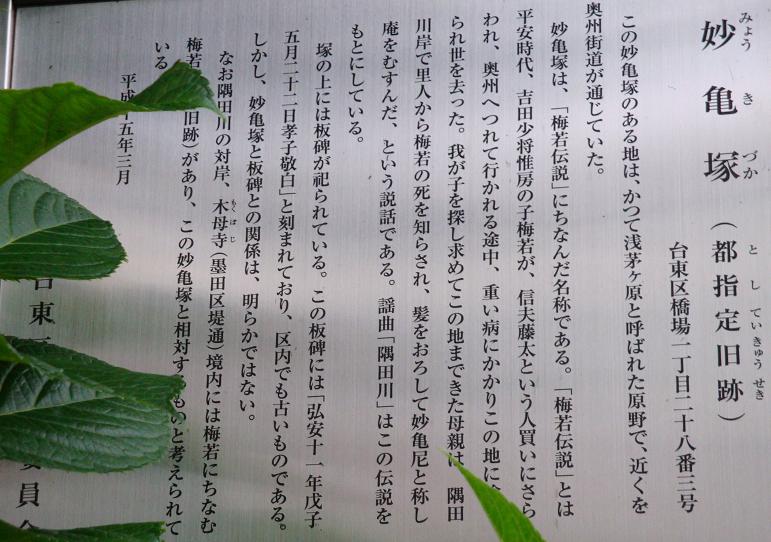 妙亀塚(都指定旧跡)
みょうきづか
としていきゅうせき
台東区橋場一丁目二十八番三号
この妙亀塚のある地は、かつて浅茅ヶ原と呼ばれた原野で、近くを
奥州街道が通じていた。
妙亀塚は、「梅若伝説」にちなんだ名称である。「梅若伝説」とは
平安時代、吉田少将惟房の子梅若が、信夫藤太という人買いにさら
われ、奥州へつれて行かれる途中、重い病にかかりこの地に
られ世を去った。我が子を探し求めてこの地まできた母親は、隅田
川岸で里人から梅若の死を知らされ、髪をおろして妙亀尼と称し
庵をむすんだ、という説話である。謡曲「隅田川」はこの伝説を
もとにしている。
塚の上には板碑が祀られている。この板碑には「弘安十一年戊子
五月二十二日孝子敬白」と刻まれており、区内でも古いものである。
しかし、妙亀塚と板碑との関係は、明らかではない。
なお隅田川の対岸、木母寺(墨田区堤通)境内には梅若にちなむ
もくぼじ
梅若旧跡)があり、この妙亀塚と相対するものと考えられて
いる
平成十五年三月
台東
員会